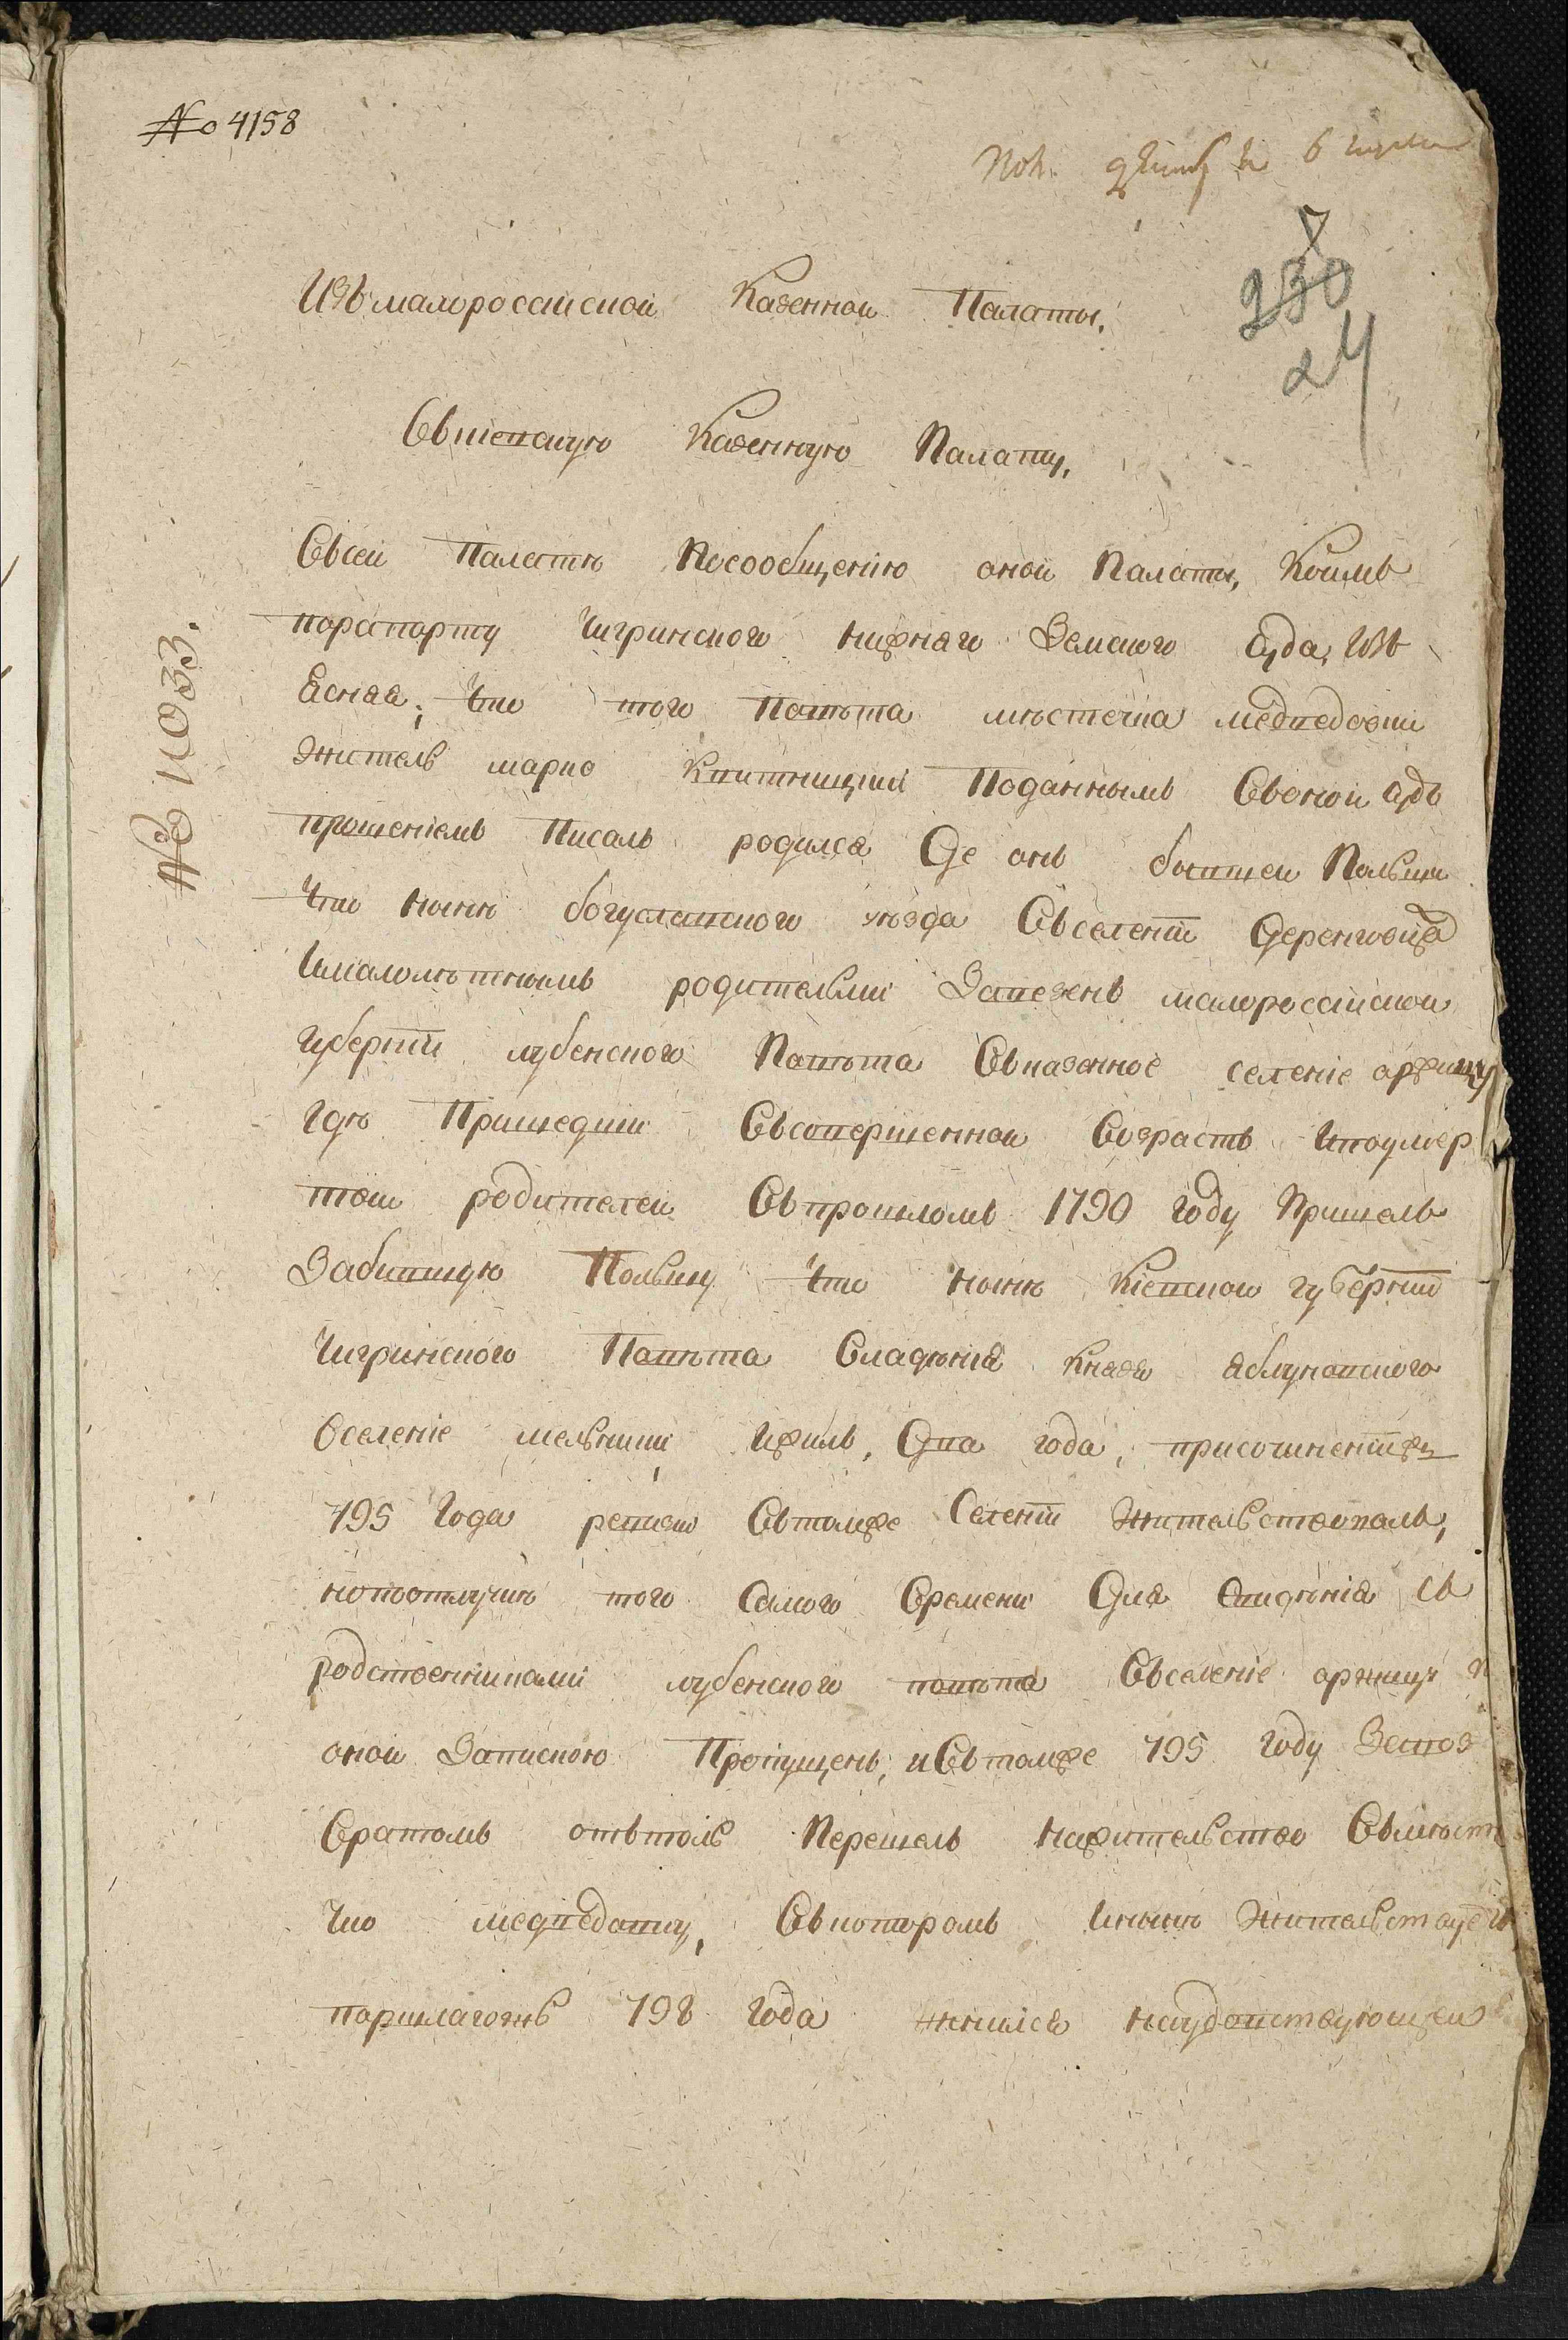 № 4158
230
24
№ 11033.
Изъ малороссійской Казенной Палаты,
Въ кіевскую Казенную Палату,
Въ сей Палатѣ По сообщенію оной Палаты, Коимъ
по рапорту Чигринского нижнаго Земского Суда, изъ
ясняя, Что того Повѣта мѣстечка медведовки
житель марко Квитницкий Поданнымъ Въ оной судъ
прошеніемъ Писалъ родился Де онъ бывшей Польши
Что нынѣ богуславского уѣзда Въ селеніи Деренговца
и малолѣтнымъ родительми Завезенъ малороссійской
губерніи лубенского Повѣта Въ казенное селеніе аржицу
гдѣ Пришедши Въ совершенной Возрастъ и по умер
твіи родителей Въ прошломъ 1790 году Пришелъ
За бившую Польшу Что нынѣ Кіевской губерніи
Чигринского Повѣта Владѣнія Князя яблуновского
В селеніе мельники, и жилъ, Два года, при сочиненіи же
795 Года ревизіи Въ томже Селеніи жительствовалъ,
но по отлучкѣ того Самого Времени Для Видѣнія съ
родственниками лубенского повѣта Въ селеніе аржицу
оной Запискою Пропущенъ, и Въ томже 795 году
Вратомъ отъ толь Перешелъ на жительство Въ мѣсте
чко медведовку, Въ которомъ и нынѣ жительствуетъ
798 года женился на удовствующей